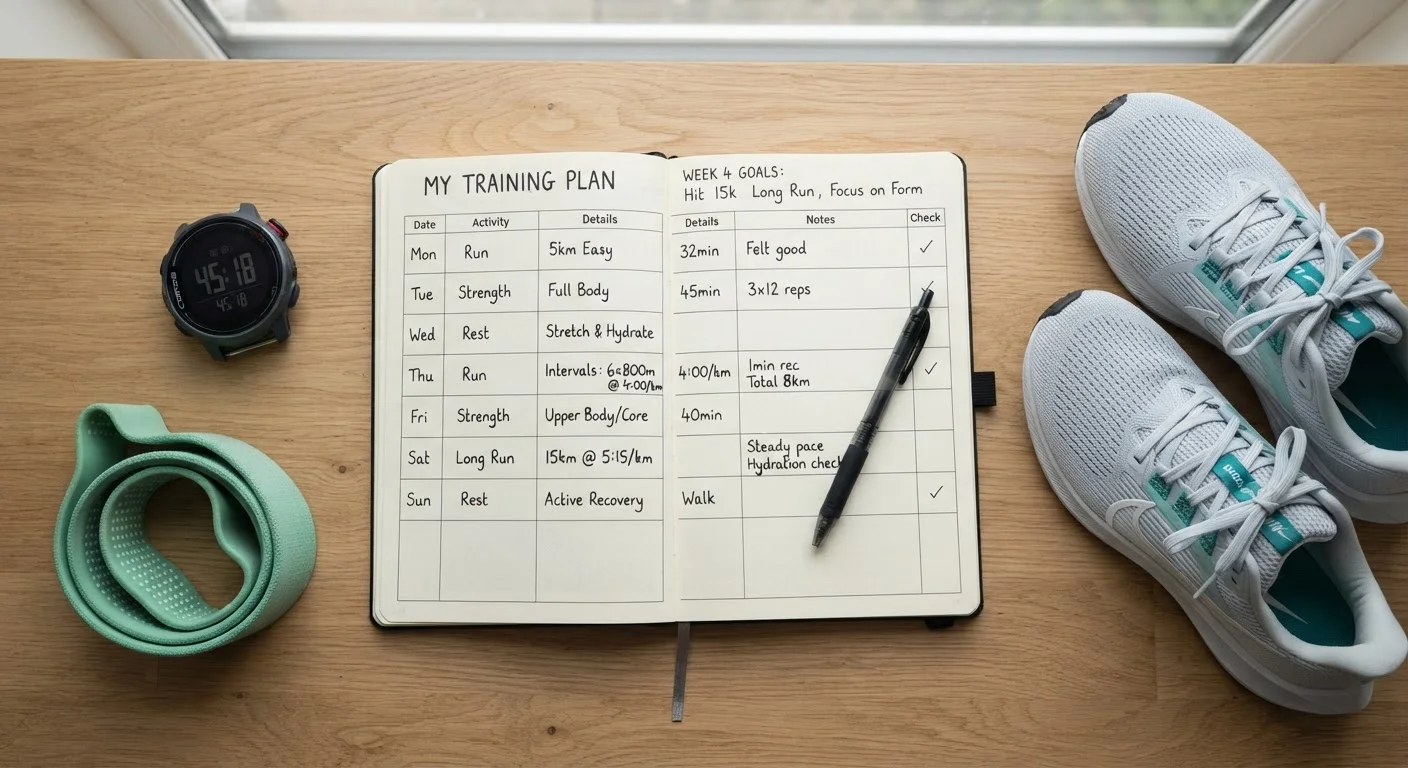 MY TRAINING PLAN
WEEK 4 GOALS:
Hit 15k Long Run, Focus on Form
Date Activity Details Details Notes Check
Mon Run 5km Easy 32min Felt good ✓
Tue Strength Full Body 45min 3x12 reps
Wed Rest Stretch & Hydrate
Thu Run Intervals: 6x800m 4:00/km 1min rec ✓
@ 4:00/km Total 8km
Fri Strength Upper Body/Core 40min
Sat Long Run 15km @ 5:15/km Steady pace
Hydration check
Sun Rest Active Recovery Walk ✓
45:18
45:18